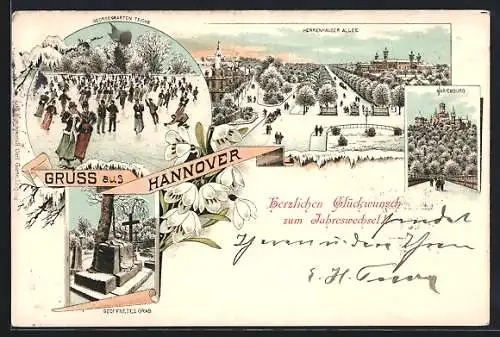 GEORGENGARTEN TEICHE
HERRENHÄUSER ALLEE
MARIENBURG
GRUSS aus HANNOVER
Herzlichen Glückwunsch
zum Jahreswechsel
sendet
Ihnen u. dem Ihren
E. H.
GEOEFFNETES GRAB